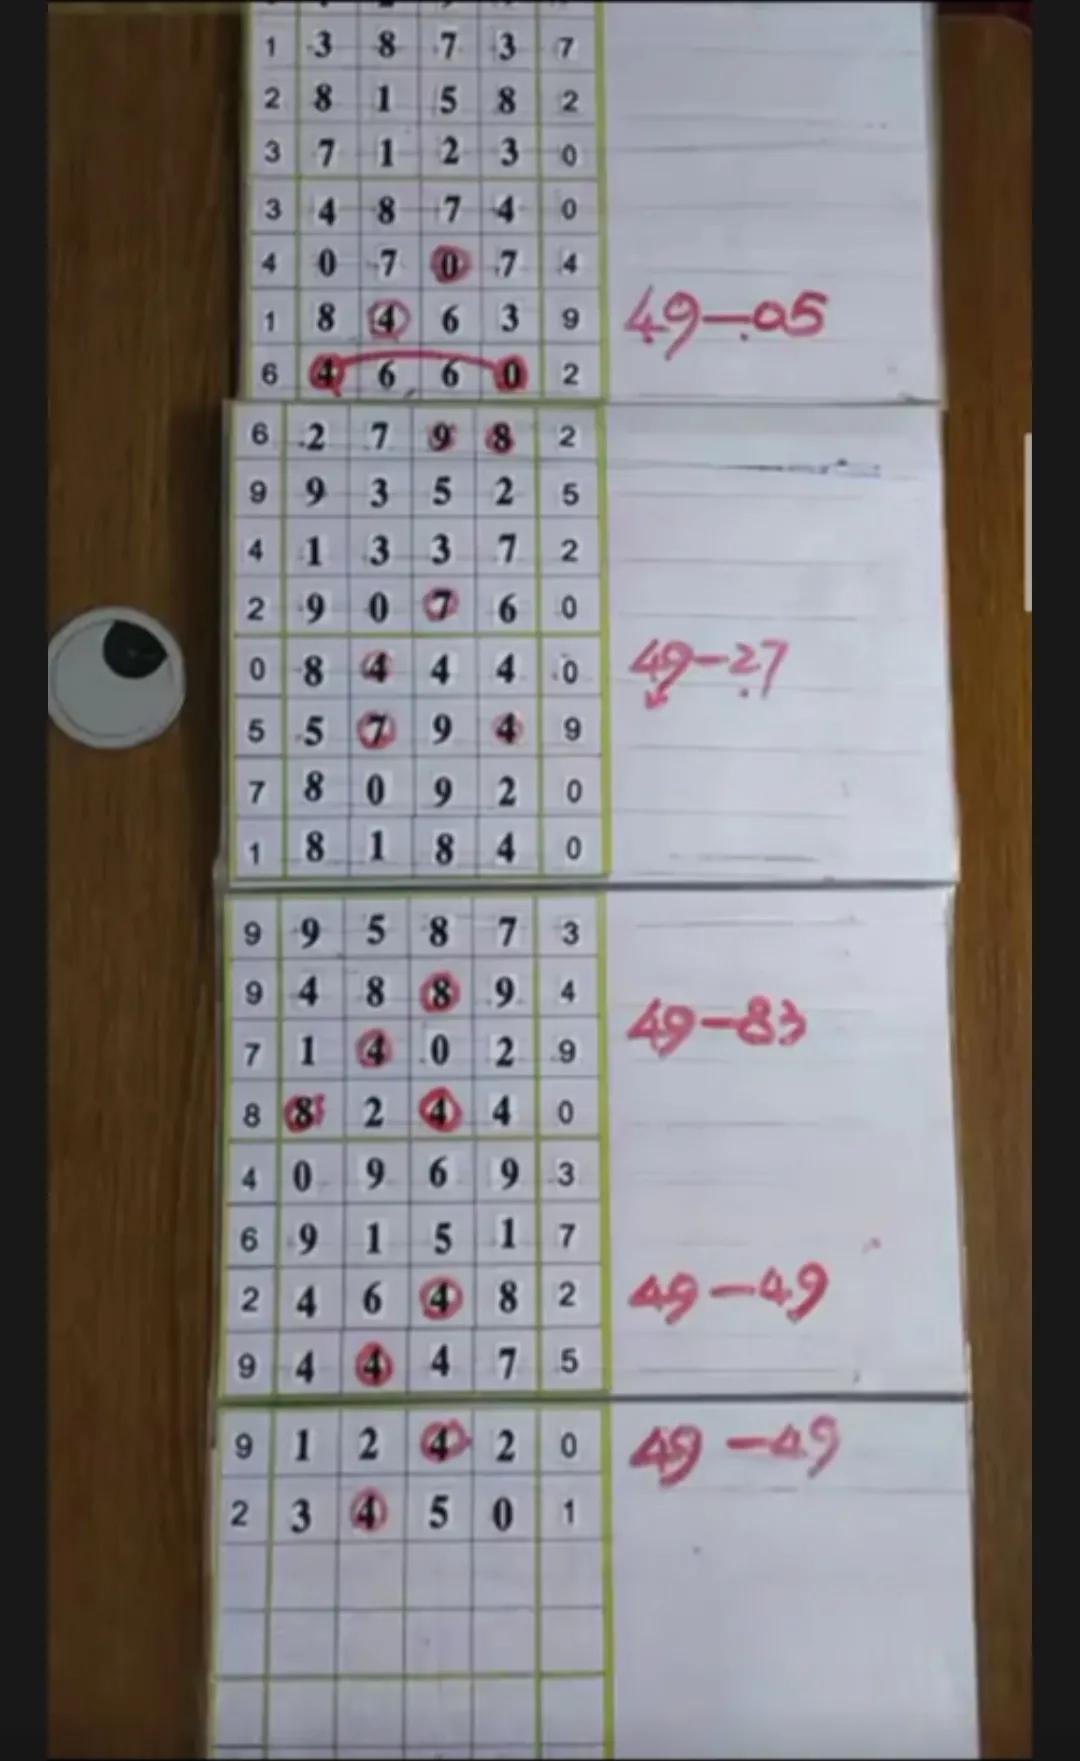 1 3 8 7 3 7
2 8 1 5 8 2
3 7 1 2 3 0
3 4 8 7 4 0
4 0 7 0 7 4
1 8 4 6 3 9 49-05
6 4 6 6 0 2
6 2 7 9 8 2
9 9 3 5 2 5
4 1 3 3 7 2
2 9 0 7 6 0
0 8 4 4 4 0 49-27
5 5 7 9 4 9
7 8 0 9 2 0
1 8 1 8 4 0
9 9 5 8 7 3
9 4 8 8 9 4 49-83
7 1 4 0 2 9
8 8 2 4 4 0
4 0 9 6 9 3
6 9 1 5 1 7
2 4 6 4 8 2 49-49
9 4 4 4 7 5
9 1 2 4 2 0 49-49
2 3 4 5 0 1